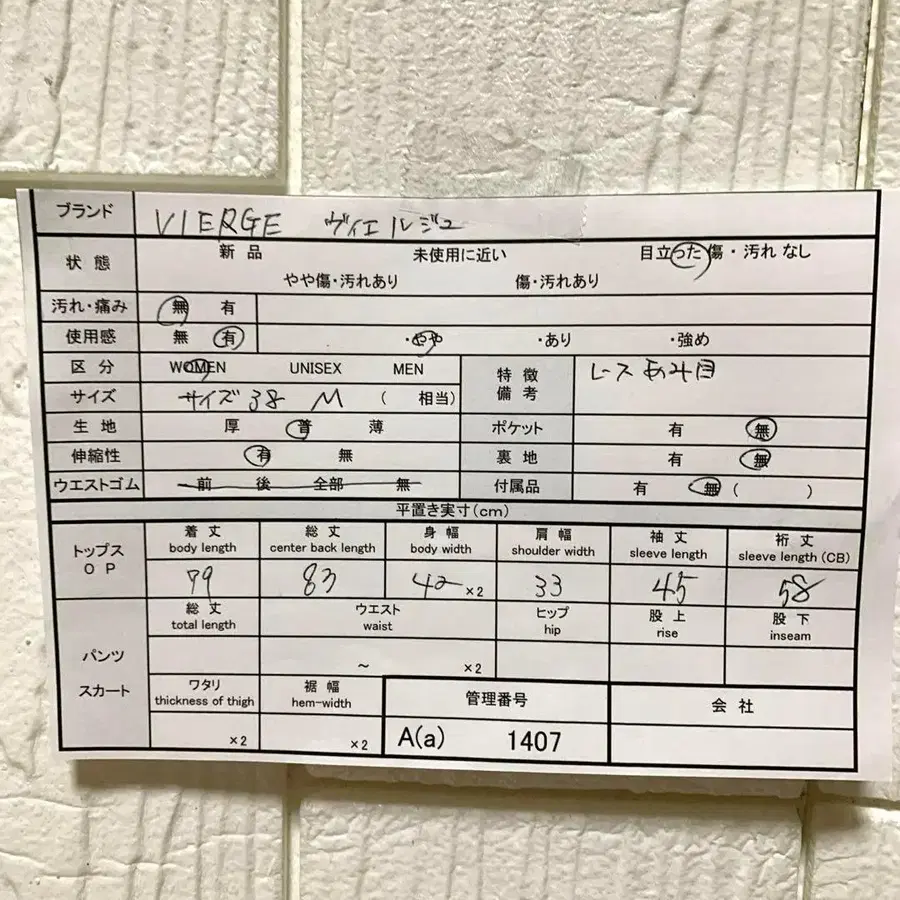 ブランド VIERGE ヴィエルジュ
状態 新品 未使用に近い 目立った傷・汚れなし
やや傷・汚れあり 傷・汚れあり
汚れ・痛み 無 有
使用感 無 有 ・やや ・あり ・強め
区分 WOMEN UNISEX MEN 特徴備考 レース あみ目
サイズ サイズ38 M ( 相当)
生地 厚 普 薄 ポケット 有 無
伸縮性 有 無 裏地 有 無
ウエストゴム 前 後 全部 無 付属品 有 無 ( )
平置き実寸(cm)
トップス OP 着丈 総丈 身幅 肩幅 袖丈 裄丈
body length center back length body width shoulder width sleeve length sleeve length (CB)
79 83 42 ×2 33 45 58
パンツ スカート 総丈 ウエスト ヒップ 股上 股下
total length waist hip rise inseam
~ ×2
ワタリ 裾幅 管理番号 会社
thickness of thigh hem-width
×2 ×2 A(a) 1407